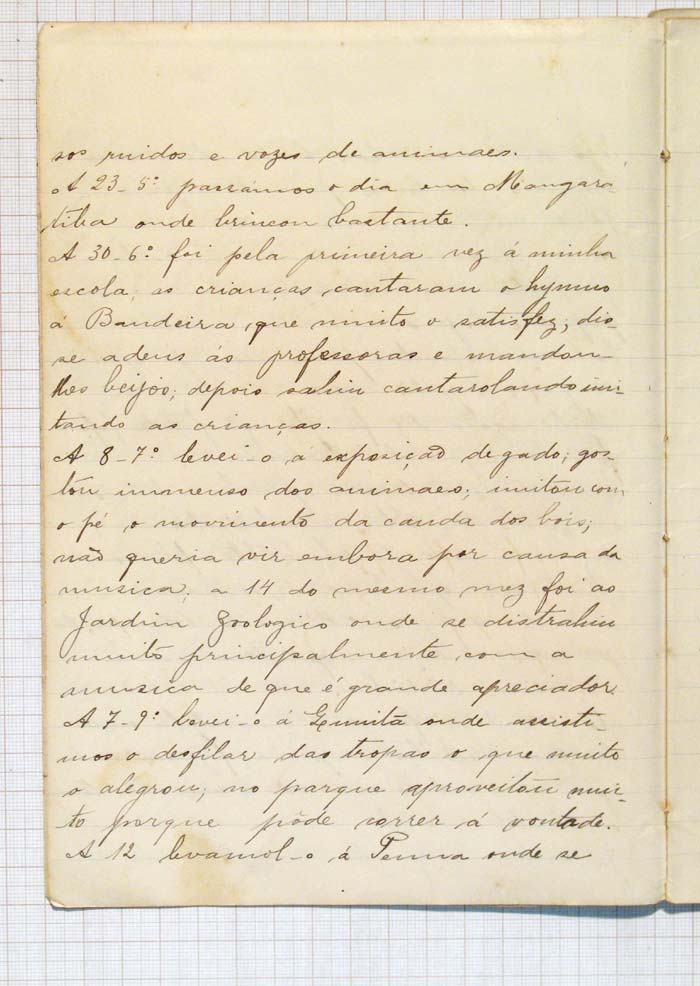 sos ruidos e vozes de animaes.
A 23-5º passámos o dia em Mangara-
tiba onde brincou bastante.
A 30-6º foi pela primeira vez á minha
escola; as crianças cantaram o hymno
á Bandeira, que muito o satisfez; dis-
se adeus ás professoras e mandou-
lhes beijos; depois sahiu cantarolando imi-
tando as crianças.
A 8-7º levei-o á exposição de gado; gos-
tou immenso dos animaes; imitou com
o pé o movimento da cauda dos bois;
não queria vir embora por causa da
musica; a 14 do mesmo mez foi ao
Jardim Zoologico onde se distrahiu
muito principalmente com a
musica de que é grande apreciador.
A 7-9º levei-o á Quinta onde assisti-
mos o desfilar das tropas o que muito
o alegrou; no parque aproveitou mui-
to porque pôde correr á vontade.
A 12 levamol-o á Penna onde se